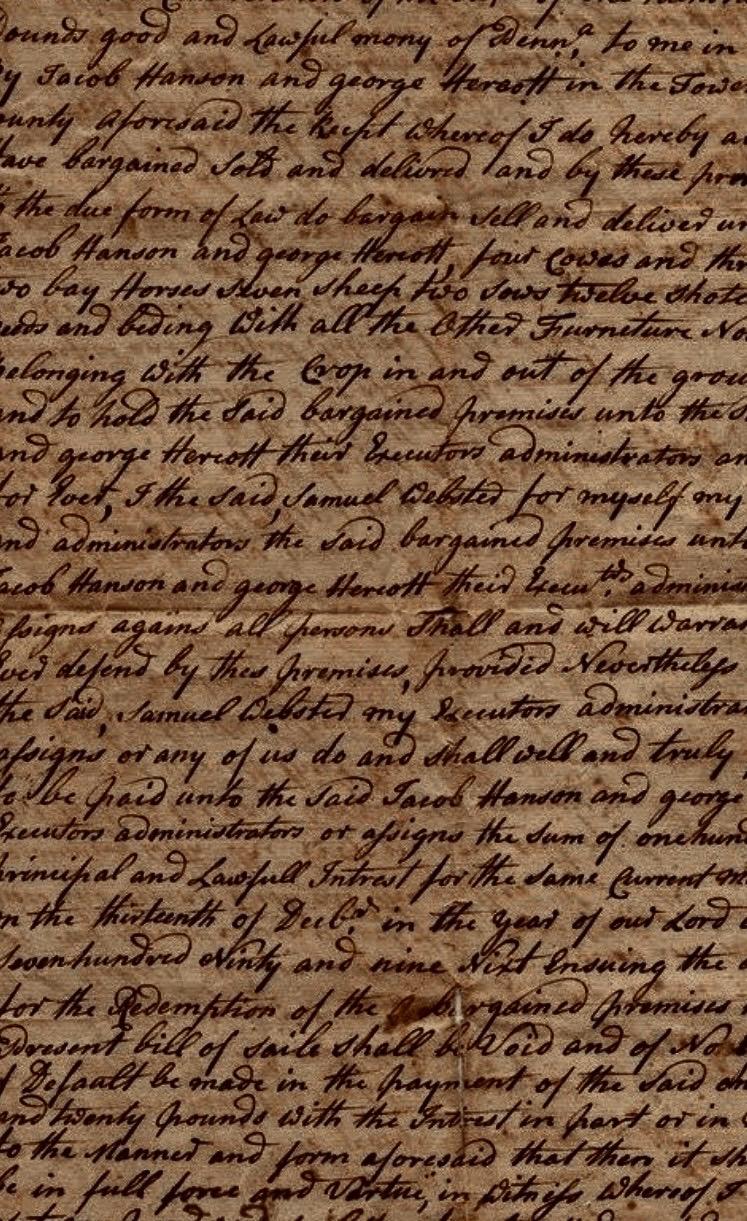 pounds good and Lawful mony of Penn,a to me in
by Jacob Hanson and george Hercott in the Town
ounty aforesaid the Rept whereof I do hereby a
have bargained Sold and delivred and by these pre
the due form of Law do bargain Sell and deliver un
Jacob Hanson and george Hercott, four Cowes and thr
two bay Horses Seven Sheep two Sows twelve Shote
beds and beding With all the Other Furneture No
belonging with the Crop in and out of the grou
and to hold the Said bargained premises unto the S
and george Hercott their Executors administrators an
for Ever, I the Said, Samuel Webster for myself my
and administrators the Said bargained premises unto
Jacob Hanson and george Hercott their Execu.trs adminis
assigns agains all persons Shall and will Warra
Ever defend by thes premises, provided Nevertheless
the Said, Samuel Webster my Executors administra
assigns or any of us do and shall well and truly
to be paid unto the Said Jacob Hanson and george
Executors administrators or assigns the Sum of onehund
principal and Lawfull Intrest for the Same Current m
on the thirteenth of Decb.r in the year of our Lord
Sevenhundred Ninty and nine Next Ensuing the
for the Redemption of the bargained premises
present bill of Saile Shall be Void and of No
if Default be made in the payment of the Said on
and twenty pounds with the Intrest in part or in
to the Manner and form aforesaid that then it sh
be in full force and Vartue, in Witness whereof I